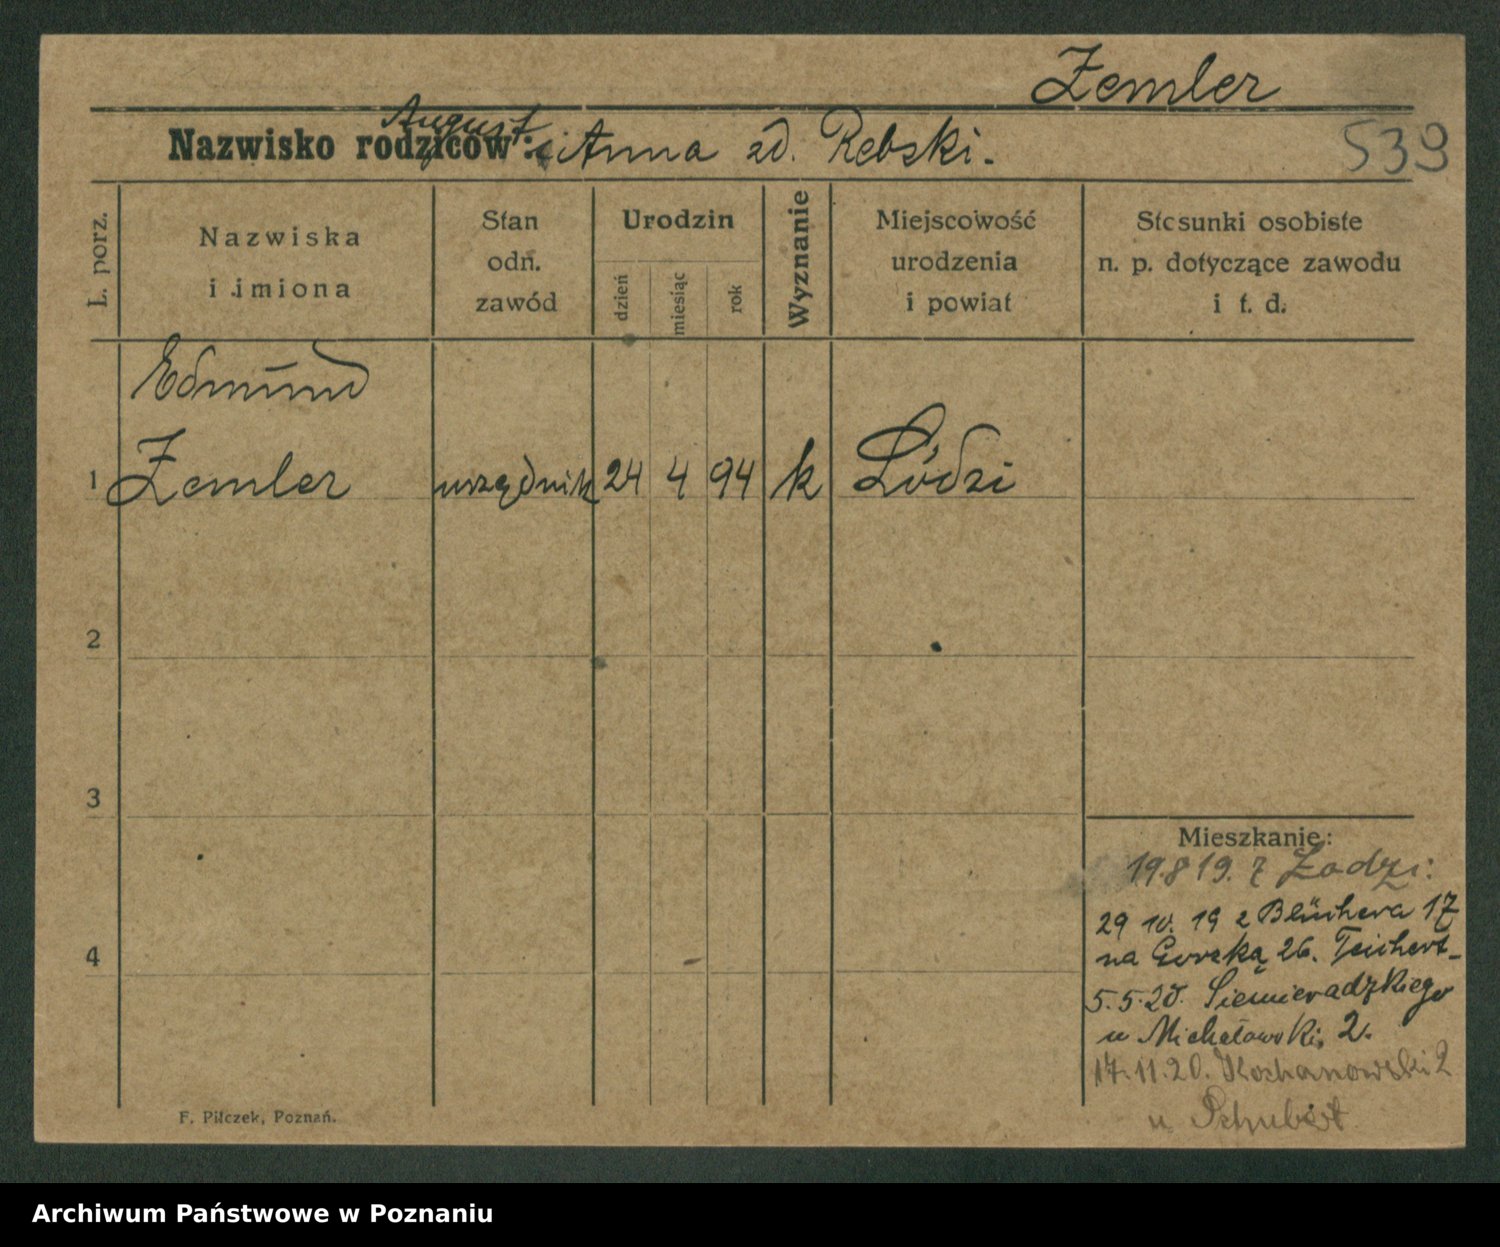 Zemler
August
Nazwisko rodziców: i Anna zd. Rebski.
539
L. porz.
Nazwiska
i imiona
Stan
odn.
zawód
Urodzin
dzień
miesiąc
rok
Wyznanie
Miejscowość
urodzenia
i powiat
Stosunki osobiste
n. p. dotyczące zawodu
i t. d.
Edmund
1 Zemler urzędnik 24 4 94 k Łódzi
2
3
4
Mieszkanie:
19.8 19. z Łodzi:
29 10. 19 z Blüchera 17
na Gorską 26. Teichert-
5.5.20. Siemieradzkiego
u Michałowski, 2.
17.11.20. Kochanowski 2
u Schubert
F. Pilczek, Poznań.
Archiwum Państwowe w Poznaniu